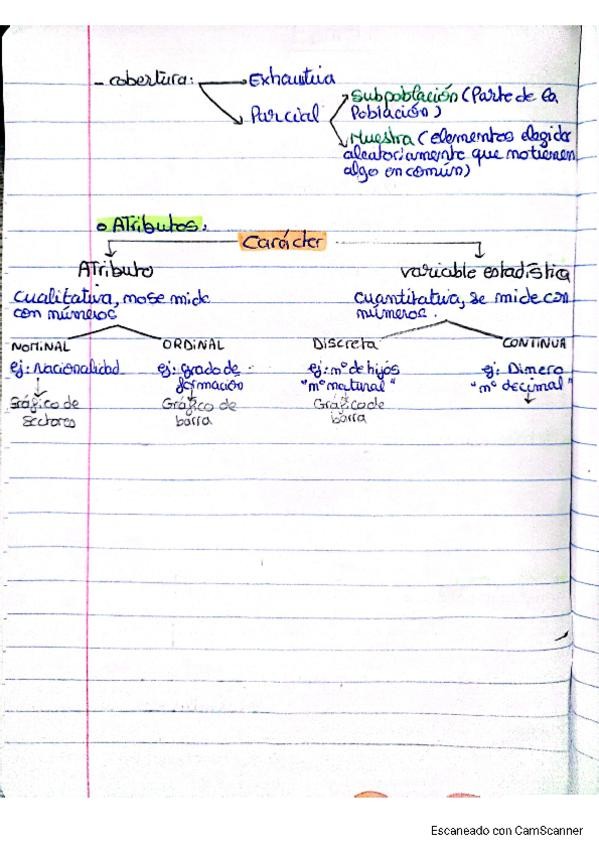 - cobertura: Exhaustiva
Parcial
Subpoblación (Parte de la
Población)
Muestra (elementos elegido
aleatoriamente que no tienen
algo en común)
o Atributos.
Carácter
Atributo
variable estadística
cualitativa, no se mide
con números
cuantitativa, se mide con
números.
NOMINAL ORDINAL Discreta CONTINUA
ej: Nacionalidad ej: grado de
formación
ej: nº de hijos
"nº natural"
ej: Dinero
"nº decimal"
Gráfico de
sectores
Gráfico de
barra
Gráfico de
barra
Escaneado con CamScanner